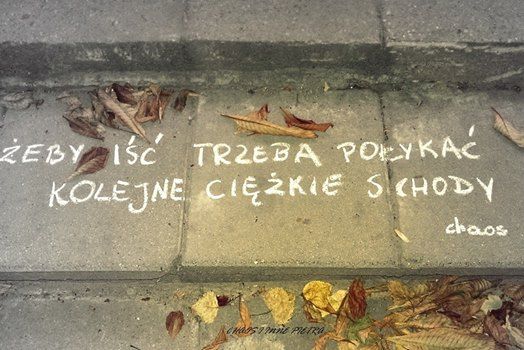 ŻEBY IŚĆ TRZEBA POŁYKAĆ
KOLEJNE CIĘŻKIE SCHODY
chaos
CHAOS I INNE PIĘTRA